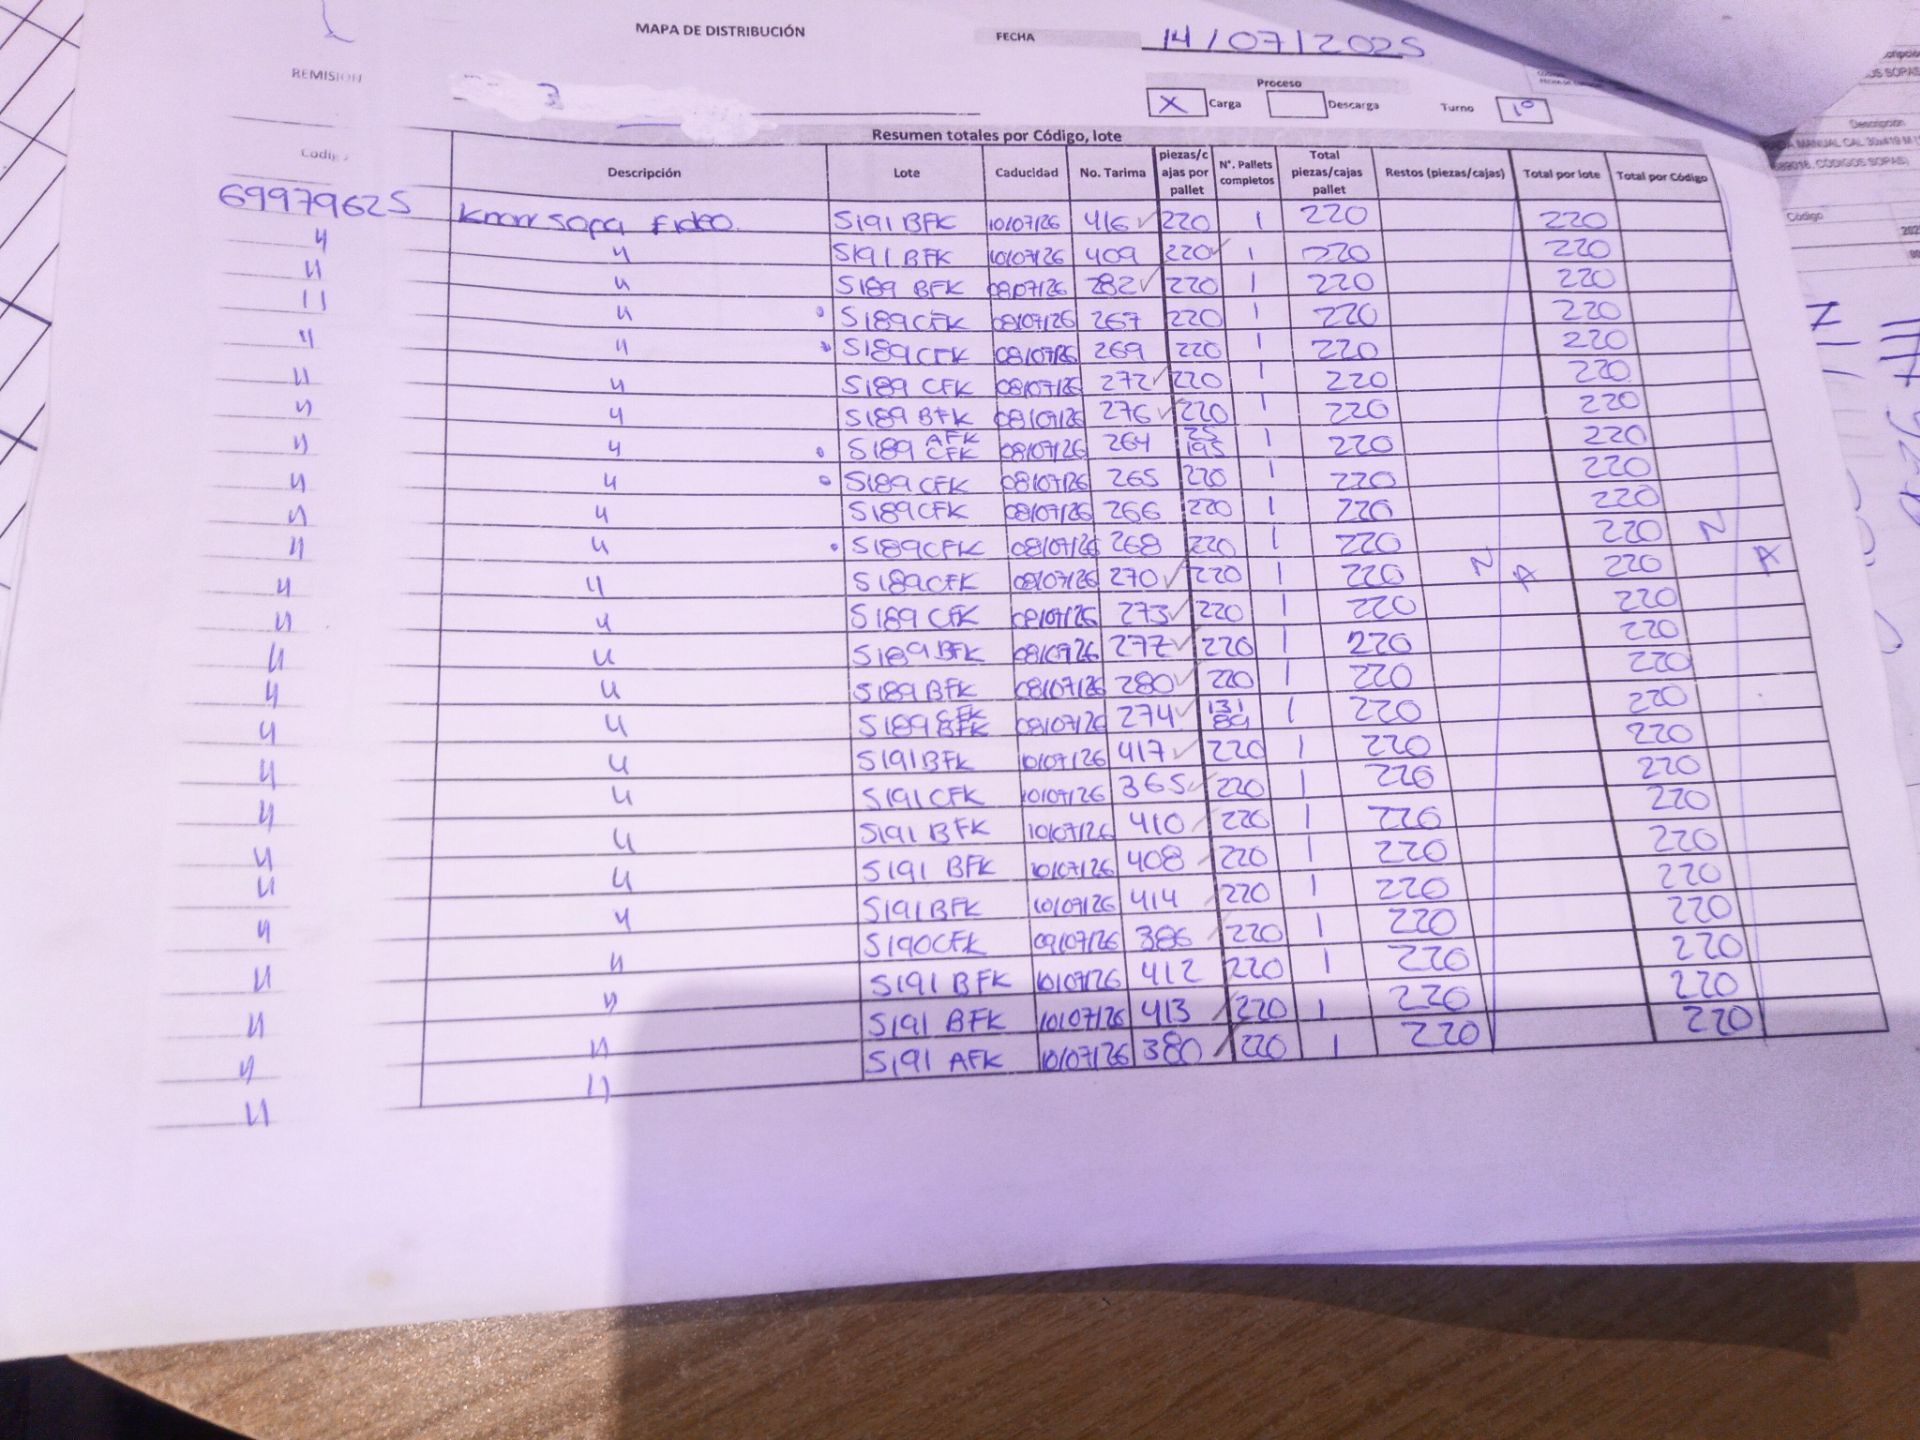 MAPA DE DISTRIBUCIÓN FECHA 14/07/2025
REMISION 3
Proceso
X Carga Descarga Turno 1º
Resumen totales por Código, lote
Codigo Descripción Lote Caducidad No. Tarima piezas/cajas por pallet N°. Pallets completos Total piezas/cajas pallet Restos (piezas/cajas) Total por lote Total por Código
69979625 Knorr sopa Fideo S191 BFK 10/07/26 416 ✓ 220 1 220 220
" " S191 BFK 10/07/26 409 220 ✓ 1 220 220
" " S189 BFK 08/07/26 282 ✓ 220 1 220 220
" " S189 CFK 08/07/26 267 220 1 220 220
" " S189 CFK 08/07/26 269 220 1 220 220
" " S189 CFK 08/07/26 272 ✓ 220 1 220 220
" " S189 BFK 08/07/26 276 ✓ 220 1 220 220
" " S189 AFK CFK 08/07/26 264 25 195 1 220 220
" " S189 CFK 08/07/26 265 220 1 220 220
" " S189 CFK 08/07/26 266 220 1 220 220
" " S189 CFK 08/07/26 268 220 1 220 220 N
" " S189 CFK 08/07/26 270 ✓ 220 1 220 N A 220 A
" " S189 CFK 08/07/26 273 ✓ 220 1 220 220
" " S189 BFK 08/07/26 277 ✓ 220 1 220 220
" " S189 BFK 08/07/26 280 ✓ 220 1 220 220
" " S189 CFK BFK 08/07/26 274 ✓ 131 89 1 220 220
" " S191 BFK 10/07/26 417 ✓ 220 1 220 220
" " S191 CFK 10/07/26 365 ✓ 220 1 220 220
" " S191 BFK 10/07/26 410 220 1 220 220
" " S191 BFK 10/07/26 408 220 1 220 220
" " S191 BFK 10/07/26 414 220 1 220 220
" " S190 CFK 09/07/26 386 220 1 220 220
" " S191 BFK 10/07/26 412 220 1 220 220
" " S191 BFK 10/07/26 413 220 1 220 220
" " S191 AFK 10/07/26 380 220 1 220 220
Descripción
Código